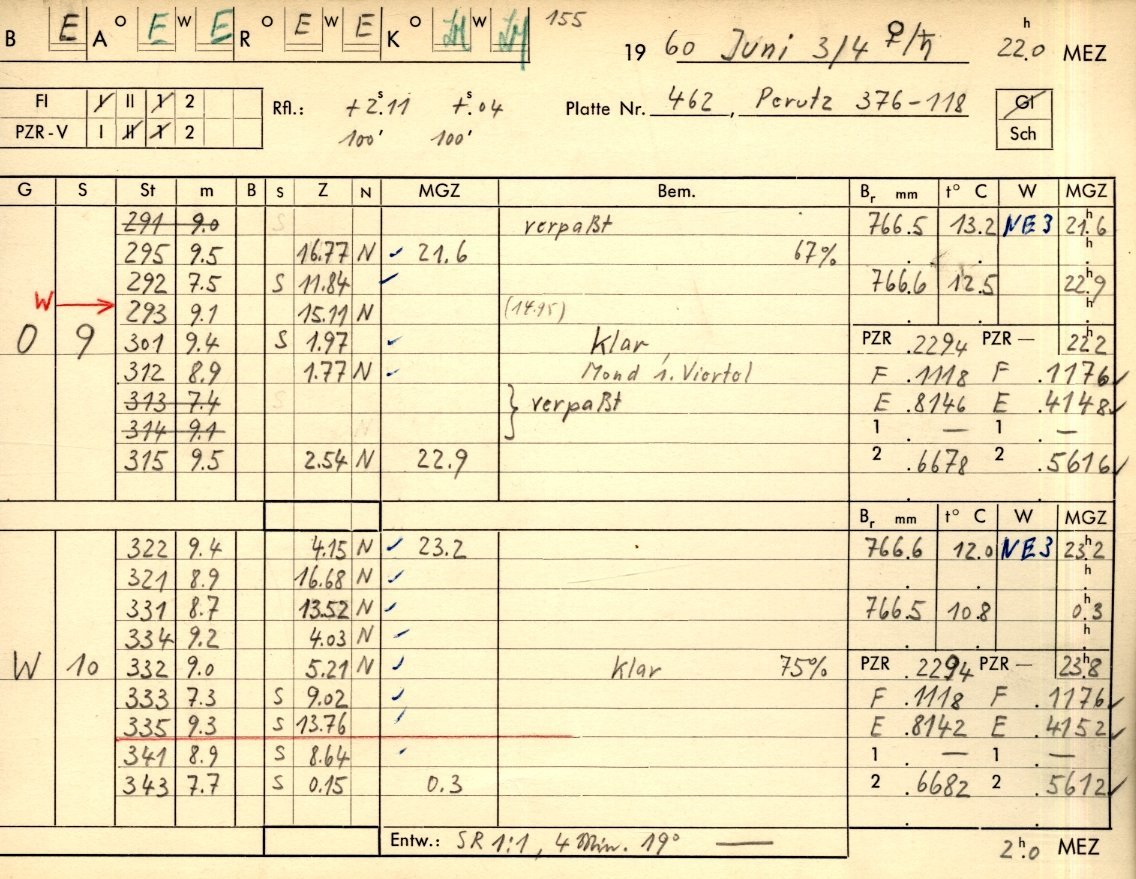 B E A O E W E R O E W E K O W 155
19 60 Juni 3/4 ♀/♄ 22.0 h MEZ
FI I II 1 2 Rfl.: +2.11 s +.04 s Platte Nr. 462, Perutz 376-118 Gl
PZR-V I II 1 2 100' 100' Sch
G S St m B S Z N MGZ Bem. Br mm t° C W MGZ
291 9.0 S verpaßt 766.5 13.2 NE3 21.6 h
295 9.5 16.77 N ✓ 21.6 67% . . h
292 7.5 S 11.84 ✓ 766.6 12.5 22.9 h
W →
293 9.1 15.11 N (14.95) . . h
O 9 301 9.4 S 1.97 ✓ Klar, PZR .2294 PZR — 22.2 h
312 8.9 1.77 N ✓ Mond 1. Viertel F .1118 F .1176 ✓
313 7.4 S } verpaßt E .8146 E .4148 ✓
314 9.1 N 1 . — 1 . —
315 9.5 2.54 N 22.9 2 .6678 2 .5616 ✓
Br mm t° C W MGZ
322 9.4 4.15 N ✓ 23.2 766.6 12.0 NE3 23.2 h
321 8.9 16.68 N ✓ . . h
331 8.7 13.52 N ✓ 766.5 10.8 0.3 h
334 9.2 4.03 N ✓ . . h
W 10 332 9.0 5.21 N ✓ Klar 75% PZR .2294 PZR — 23.8 h
333 7.3 S 9.02 ✓ F .1118 F .1176 ✓
335 9.3 S 13.76 ✓ E .8142 E .4152 ✓
341 8.9 S 8.64 ✓ 1 . — 1 . —
343 7.7 S 0.15 0.3 2 .6682 2 .5612 ✓
Entw.: SR 1:1, 4 Min. 19° — 2.0 h MEZ